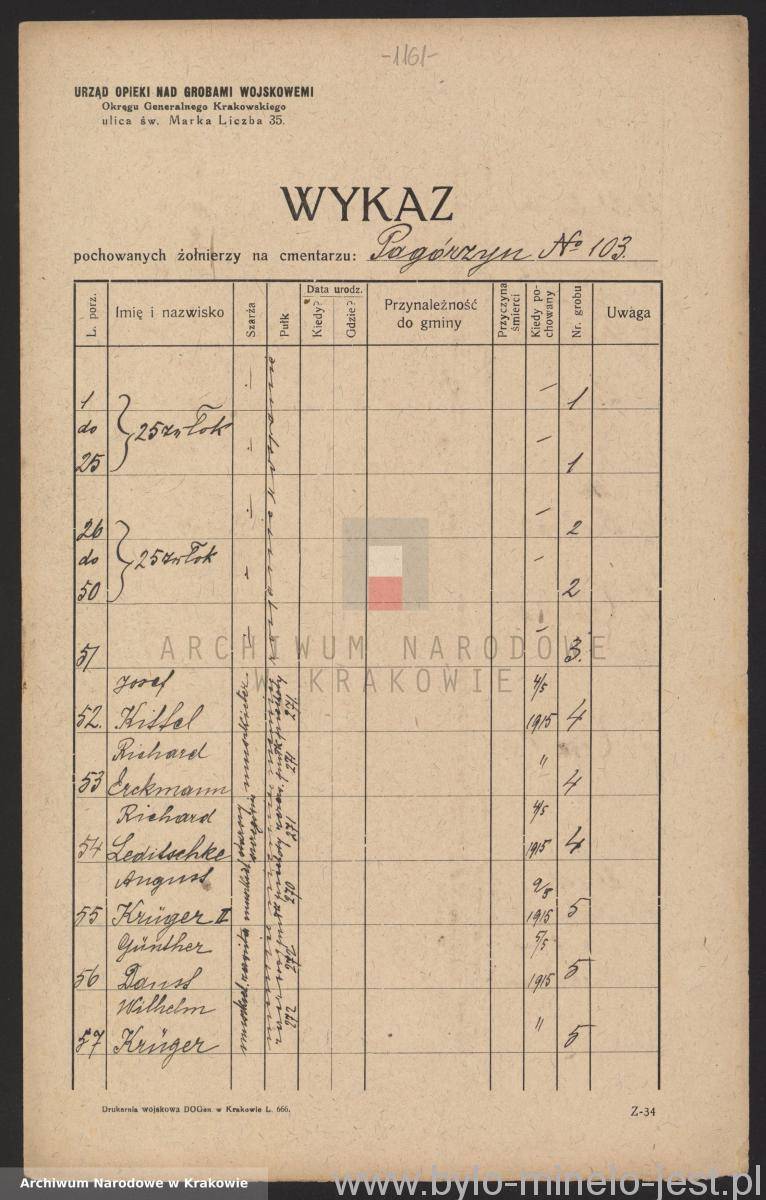 -1161-
URZĄD OPIEKI NAD GROBAMI WOJSKOWEMI
Okręgu Generalnego Krakowskiego
ulica św. Marka Liczba 35.
WYKAZ
pochowanych żołnierzy na cmentarzu: Pagórzyn No 103.
L. porz. Imię i nazwisko Szarża Pułk Data urodz. Kiedy? Gdzie? Przynależność do gminy Przyczyna śmierci Kiedy pochowany Nr. grobu Uwaga
1 — — 1
do 25 zwłok
25 — — 1
26 — — 2
do 25 zwłok
50 — — 2
51 — — 3.
Josef 4/5
52. Kittel 271 1915 4
Richard
53 Erckmann 271 " 4
Richard 4/5
54 Leditschke 271 1915 4
August
55 Krüger II 270 1915 5
Günther 5/5
56 Danss 272 1915 5
Wilhelm
57 Krüger 272 " 5
Drukarnia wojskowa DOGen. w Krakowie L. 666.
Z-34
ARCHIWUM NARODOWE
W KRAKOWIE
Archiwum Narodowe w Krakowie
www.bylo-minelo-jest.pl